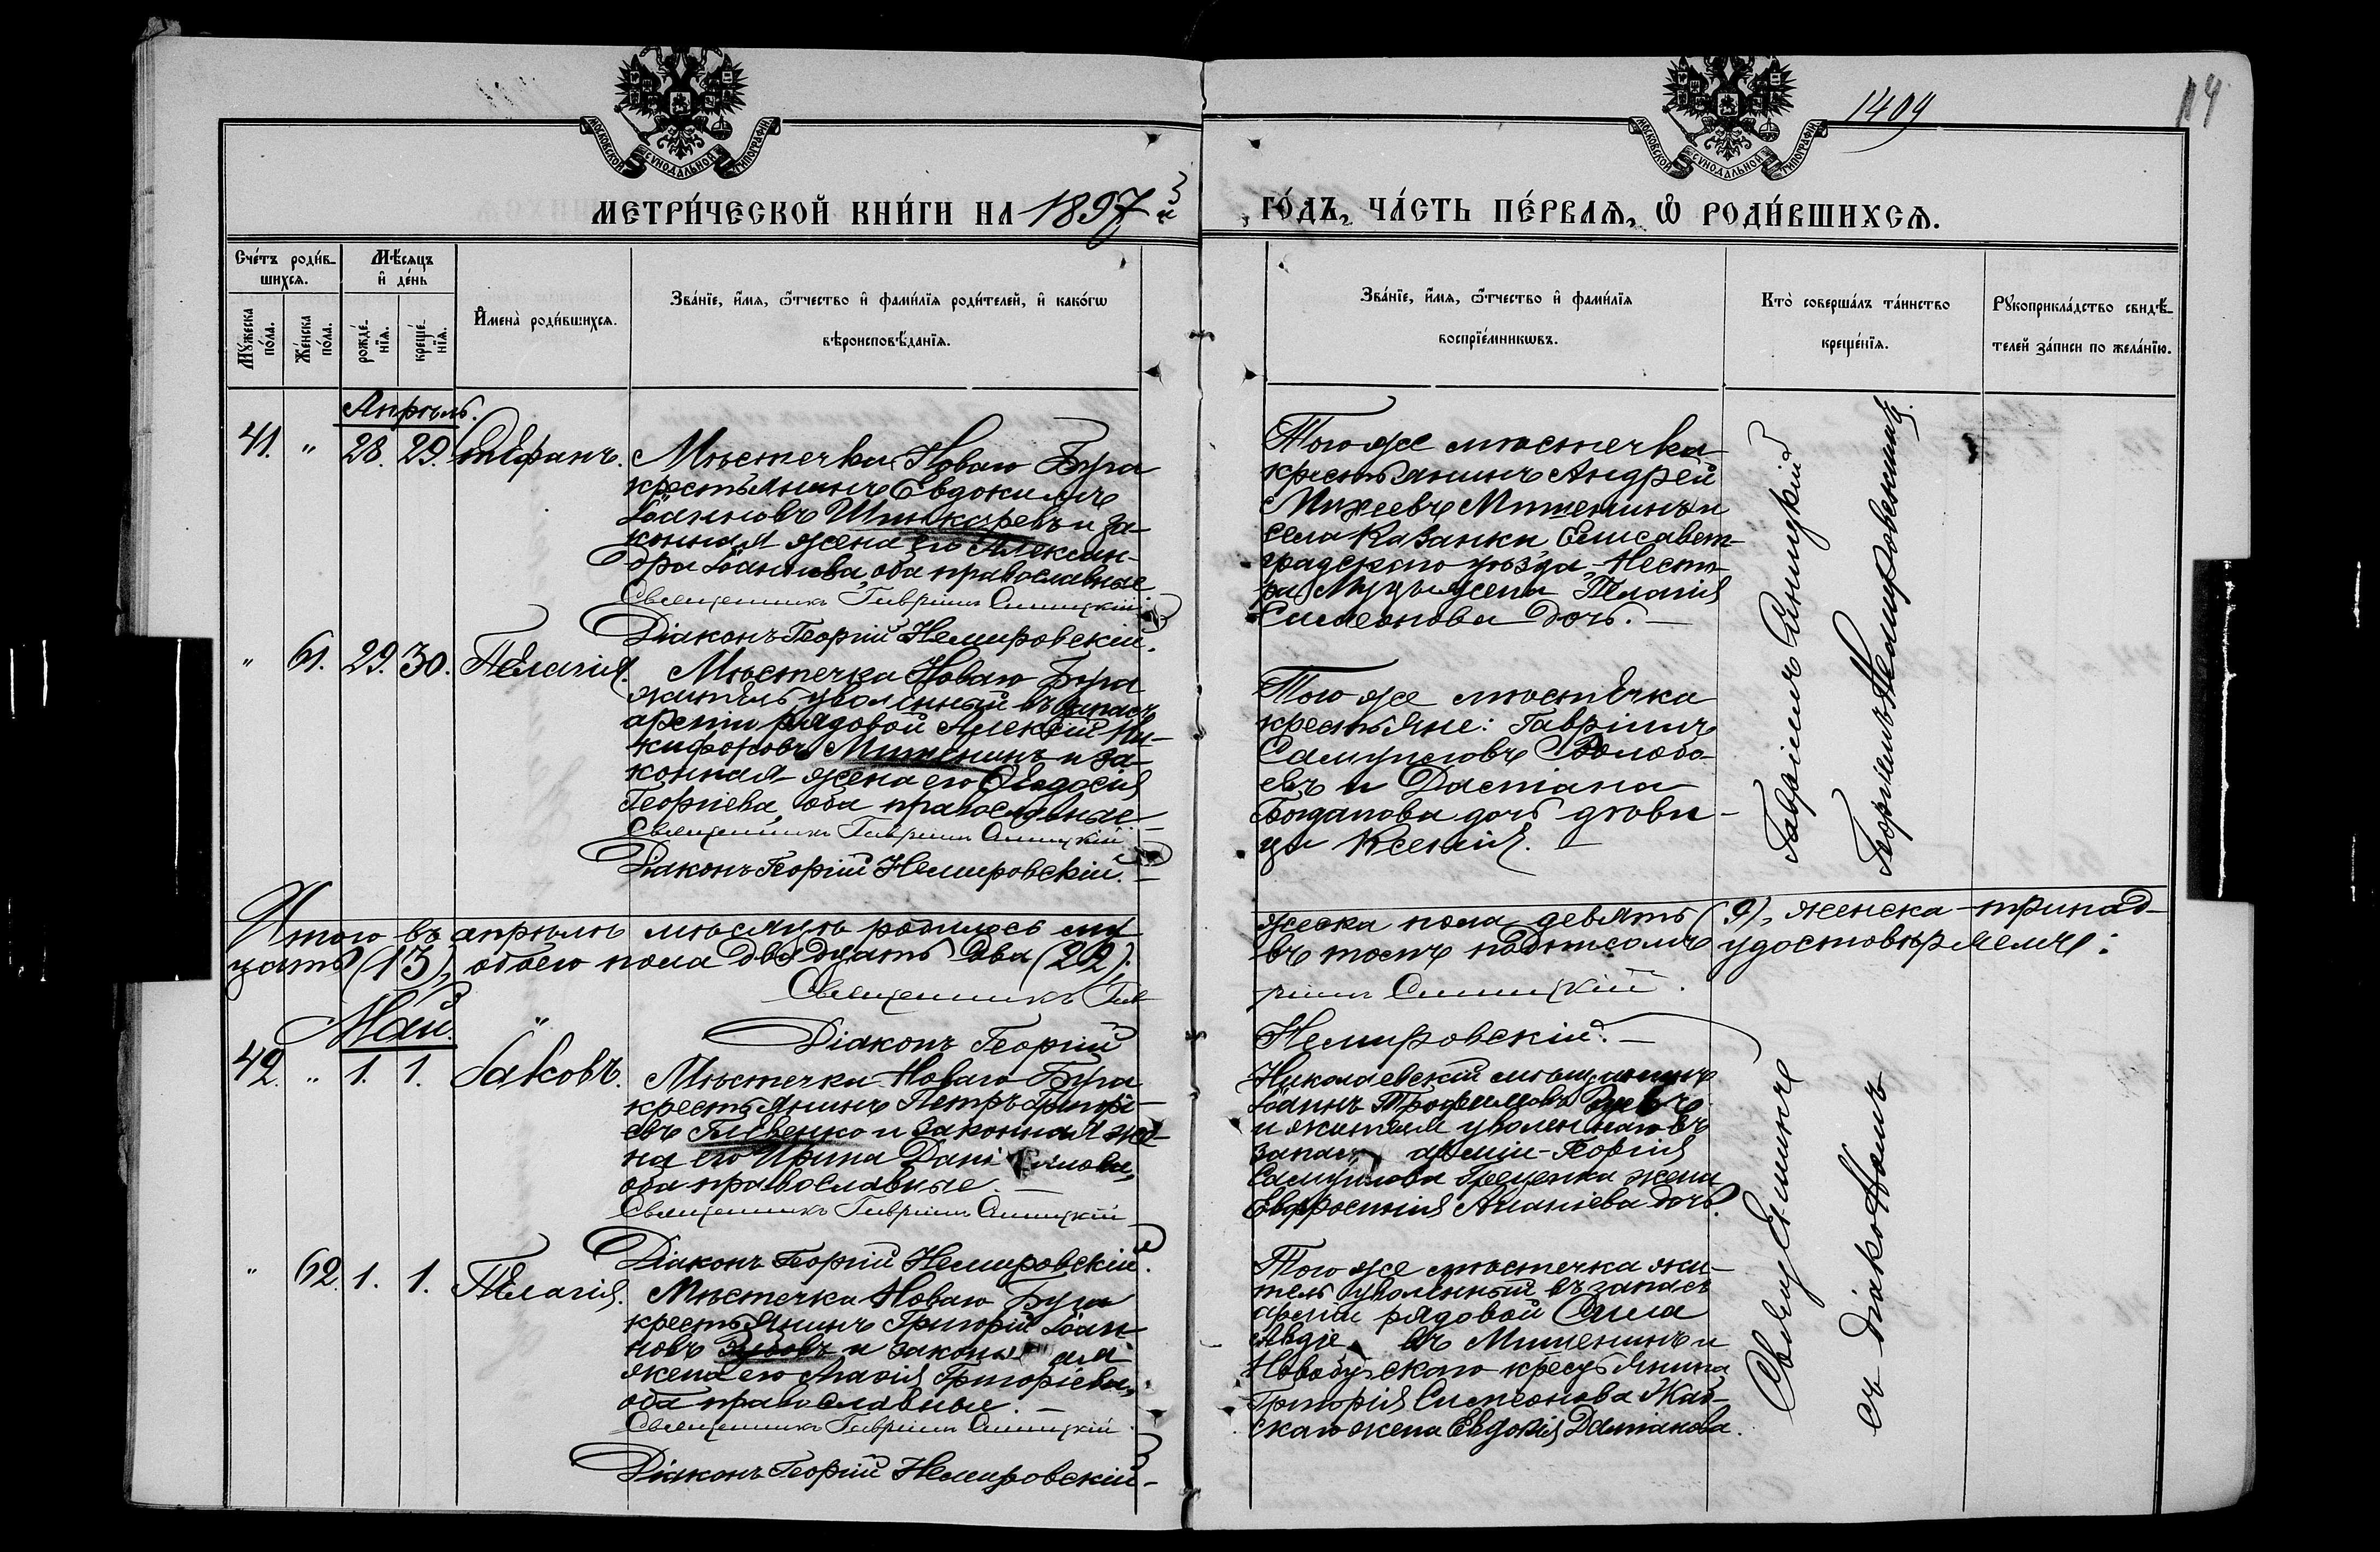 1409
14
МОСКОВСКОЙ СѴНОДАЛЬНОЙ ТИПОГРАФІИ
МОСКОВСКОЙ СѴНОДАЛЬНОЙ ТИПОГРАФІИ
МЕТРИ́ЧЕСКОЙ КНИ́ГИ НА 1897й
ГО́ДЪ, ЧА́СТЬ ПЕ́РВАЯ, Ѽ РОДИ́ВШИХСЯ.
Сче́тъ роди́в-
шихся.
Мѣ́сяцъ
и҆ де́нь
Мꙋ́жеска по́ла.
Же́нска по́ла.
рожде́-нїя.
креще́-нїя.
И҆мена̀ роди́вшихся.
Зва́нїе, и҆́мя, ѻ҆́тчество и҆ фами́лїя роди́телей, и҆ како́гѡ
вѣроисповѣ́данїя.
Зва́нїе, и҆́мя, ѻ҆́тчество и҆ фами́лїя
воспрїе́мникѡвъ.
Кто̀ соверша́лъ та́инство
креще́нїя.
Рꙋкоприкла́дство свидѣ́-
телей за́писи по жела́нїю.
Апрѣль.
41. " 28. 29. Стефанъ.
Мѣстечка Новаго Буга
крестьянинъ Евдокимъ
Іоанновъ Шинкаревъ и за-
конная жена его Алексан-
дра Іоаннова, оба православные
Священникъ Гавріилъ Синицкій
Діаконъ Георгій Немировскій.
Того же мѣстечка
крестьянинъ Андрей
Михеевъ Митенинъ и
села Казанки Елисавет-
градскаго уѣзда, Несто-
ра жена Пелагія
Симеонова дочь.
Гавріилъ Синицкій
Георгіемъ Немировскимъ.
" 61. 29. 30. Пелагія.
Мѣстечка Новаго Буга
житель уволенный въ запасъ
арміи рядовой Алексій Ни-
кифоровъ Митенинъ и за-
конная жена его Ѳеодосія
Георгіева, оба православные
Священникъ Гавріилъ Синицкій
Діаконъ Георгій Немировскій.
Того же мѣстечка
крестьяне: Гавріилъ
Самуиловъ
евъ и Даміана
Богданова дочь дѣви-
ца Ксенія.
Итого въ апрѣлѣ мѣсяцѣ родилось му-
жеска пола девять (9), женска-тринад-
цать (13), обоего пола двадцать два (22).
въ томъ подписомъ удостовѣряемъ:
Священникъ Гав-
ріилъ Синицкій.
Діаконъ Георгій
Немировскій.
Май.
42. " 1. 1. Іаковъ.
Мѣстечка Новаго Буга
крестьянинъ Петръ Григорі-
евъ и законная же-
на его Ирина Даніилова,
оба православные.
Священникъ Гавріилъ Синицкій
Діаконъ Георгій Немировскій.
Николаевскій мѣщанинъ
Іоаннъ Трофимовъ
и жителя уволеннаго въ
запасъ арміи Георгія
Самуилова Греченка жена
Евфросинія Ананіева дочь.
Священникъ
съ діакономъ
" 62. 1. 1. Пелагія.
Мѣстечка Новаго Буга
крестьянинъ Григорій Іоан-
новъ Зубовъ и законная
жена его Агаѳія Григорієва,
оба православные.
Священникъ Гавріилъ Синицкій
Діаконъ Георгій Немировскій
Того же мѣстечка жи-
тель уволенный въ запасъ
арміи рядовой Сила
Авдіевъ Митенинъ и
Новобугскаго крестьянина
Григорія Симеонова
скаго жена Евдокія Даміанова.